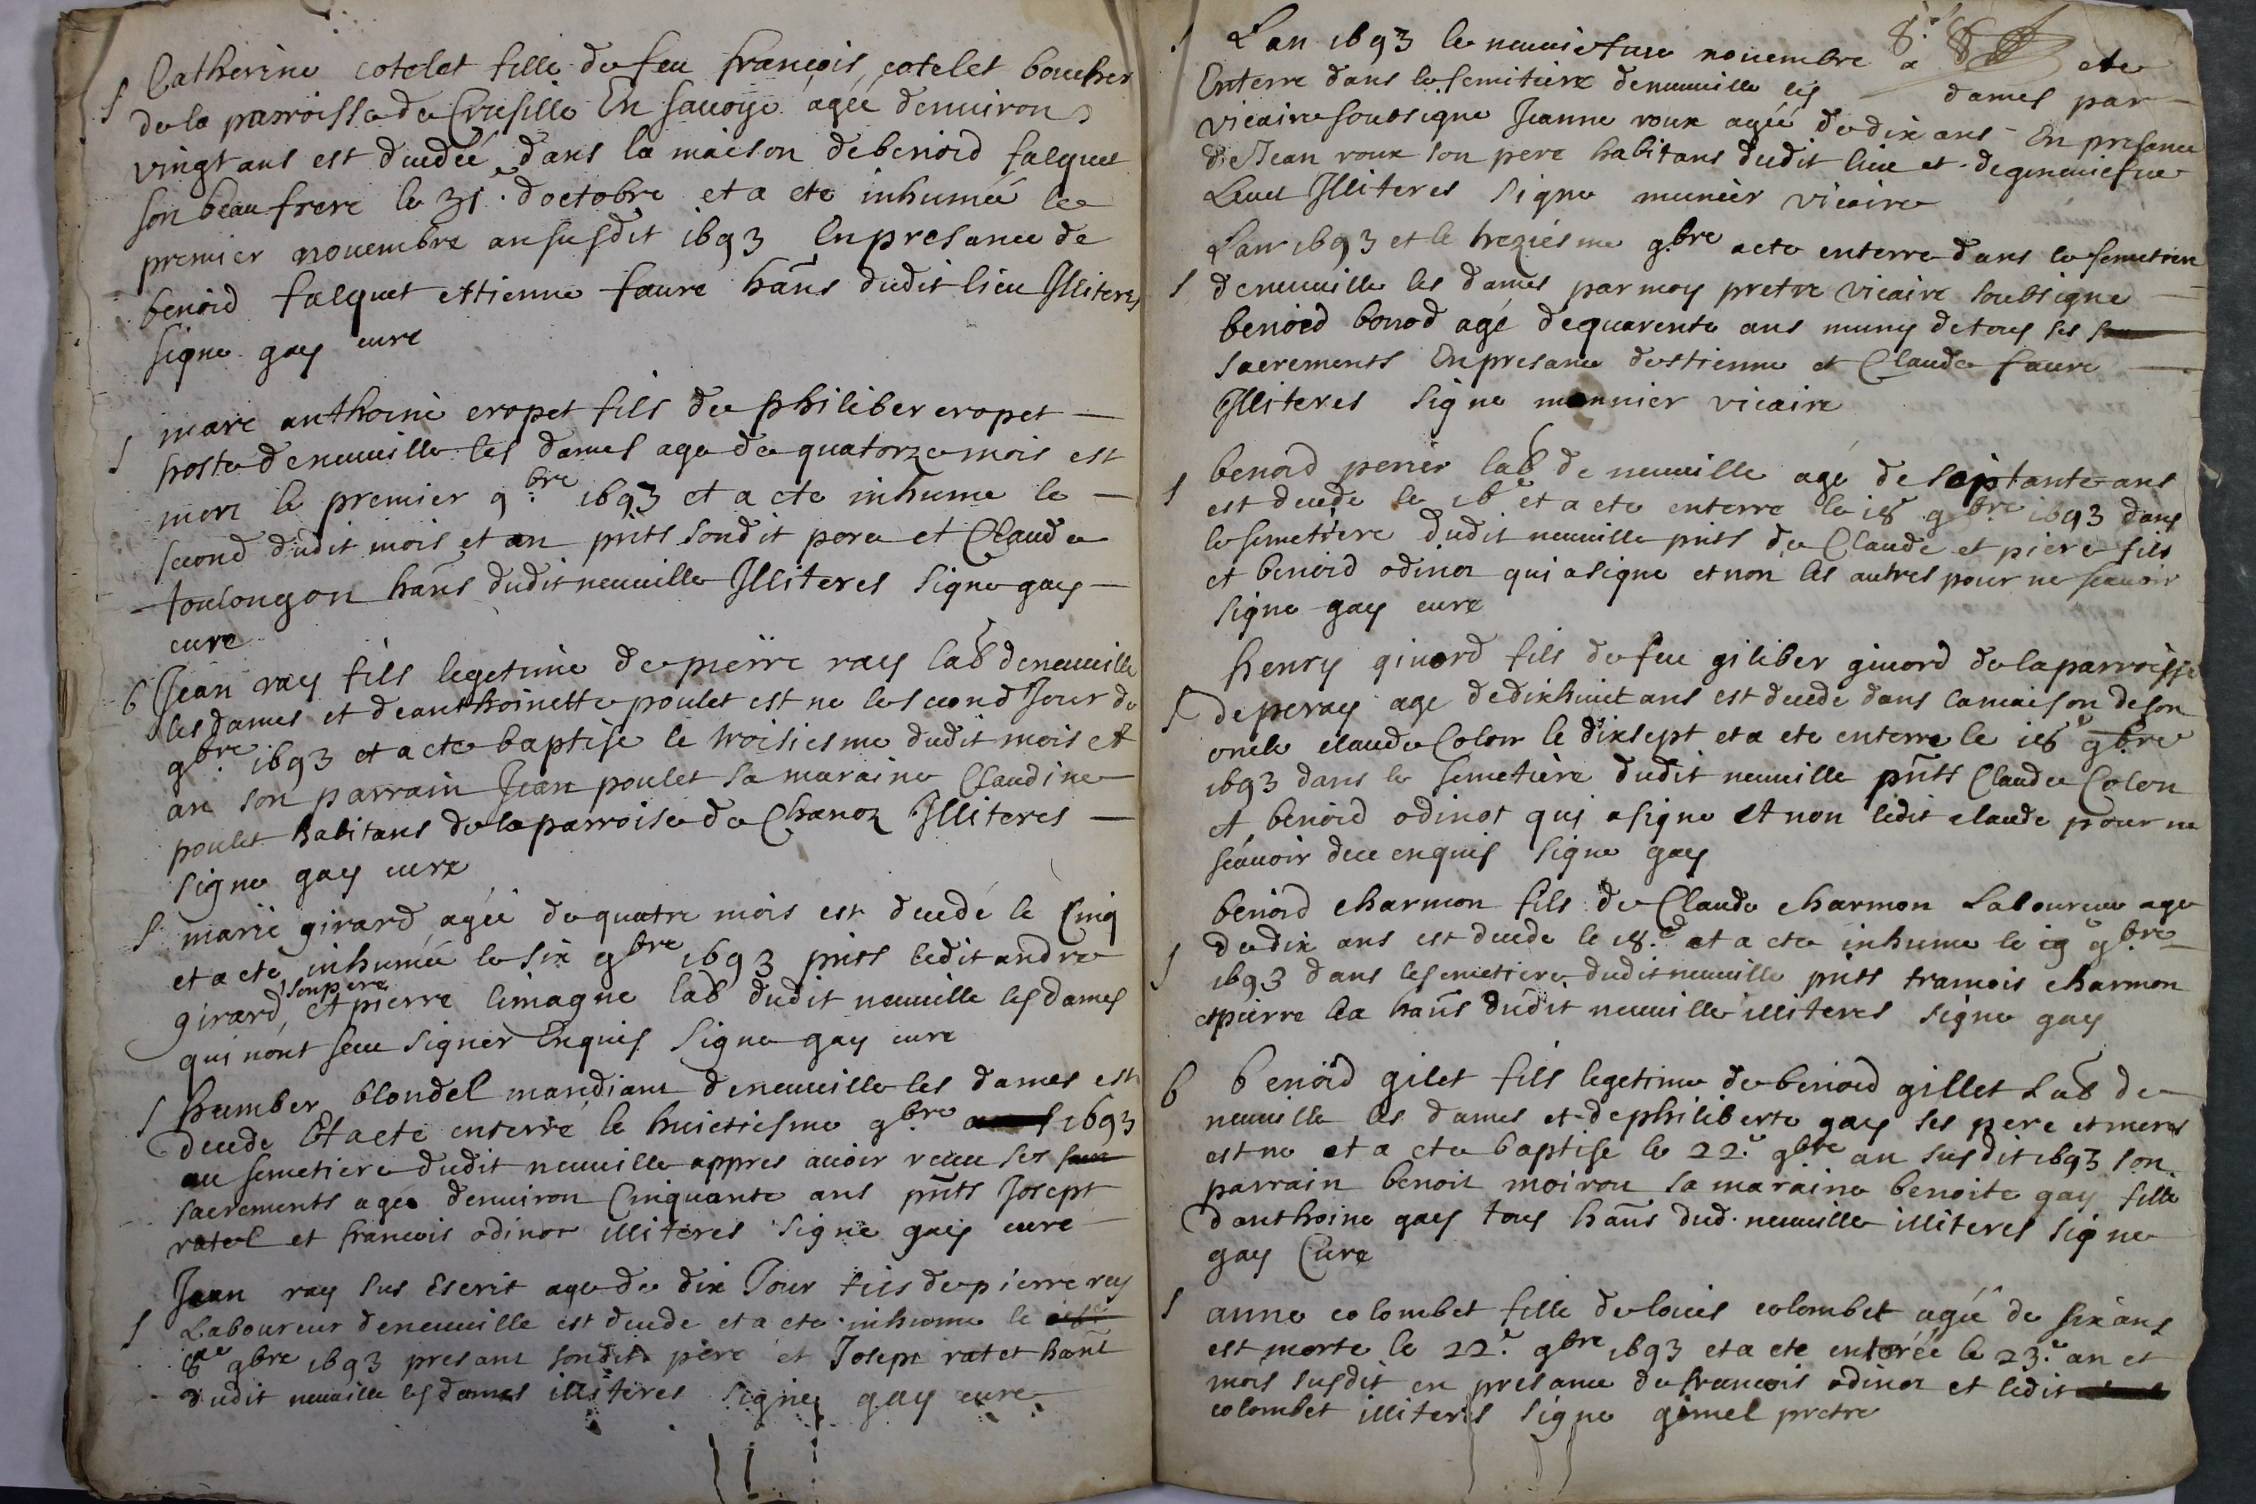 S Catherine cotelet fille de feu françois cotelet boucher
de la parroisse de Crusille En savoye agéé denuiron
vingt ans est decedéé dans la maison de benoid falquet
son beau frere le 31e doctobre et a ete inhuméé le
premier nouembre an susdit 1693 En presance de
benoid falquet ettienne faure hāns dudit lieu Illiteres
signe gay cure
S marc anthoine cropet fils de philiber cropet
hoste de neuuille les dames age de quatorze mois est
mort le premier 9bre 1693 et a ete inhume le
second dudit mois et an pnts sondit pere et Claude
toulongon hāns dudit neuuille Illiteres signe gay
cure
b Jean ray fils legetime de pierre ray lab de neuuille
les dames et deanthoinette poulet est ne le second Jour de
9bre 1693 et a ete baptise le troisiesme dudit mois et
an son parrain Jean poulet sa maraine Claudine
poulet habitans de la parroise de Chanoz Illiteres
signe gay cure
S marie girard agéé de quatre mois est decedé le Cinq
et a ete inhuméé le six 9bre 1693 pnts ledit andre
girard son pere et pierre limagne lab dudit neuuille les dames
qui nont sceu signer Enquis signe gay cure
S humber blondel mandiant de neuuille les dames est
decede Et a ete enterré le huictiesme 9bre 1693
au semetiere dudit neuuille appres auoir receu ses
sacrements agee denuiron Cinquante ans pnts Josept
ratel et francois odinot illiteres signe gay cure
S Jean ray sus Escrit age de dix Jour fils de pierre ray
Laboureur de neuuille est decede et a ete inhume le
9bre 1693 presant sondit pere et Josept ratet hant
dudit neuuille les dames illiteres signe gay cure
S Lan 1693 le neuuiesme nouembre a ete
Enterre dans le semitiere deneuuille les dames par
vicaire soubsigne Jeanne roux agéé de dix ans En presance
de Jean roux son pere habitans dudit lieu et de geneuiefue
Leuet Illiteres signe munier vicaire
S Lan 1693 et le treziesme 9bre a ete enterre dans le semetiere
deneuuille les dames par moy pretre vicaire soubsigne
benoid bonod agé dequarente ans muny de tous ses
sacrements En presance destienne et Claude faure
Illiteres signe monnier vicaire
S benoid perier lab de neuuille agé de septante ans
est decede le 16e et a ete enterre le 18 9bre 1693 dans
le semetiere dudit neuuille pnts de Claude et piere fils
et benoid odinot qui a signe et non les autres pour ne scauoir
signe gay cure
S henry giuord fils de feu giliber giuord de la parroisse
deperay age de dixhuict ans est decede dans la maison de son
oncle claude Colon le dixsept et a ete enterre le 18e 9bre
1693 dans le semetiere dudit neuuille pnts Claude Colon
et benoid odinot qui a signe et non ledit claude pour ne
scauoir de ce enquis signe gay
S benoid charmon fils de Claude charmon Laboureur age
de dix ans est decede le 18.e et a ete inhume le 19e 9bre
1693 dans le semetiere dudit neuuille pnts francois charmon
et pierre lea hāns dudit neuuille illiteres signe gay
b benoid gilet fils legetime de benoid gillet Lab de
neuuille les dames et de philiberte gay ses pere et mere
est ne et a ete baptise le 22.e 9bre an susdit 1693 son
parrain benoit moiron sa maraine benoite gay fille
danthoine gay tous hāns dud. neuuille illiteres signe
gay Cure
S anne colombet fille de louis colombet agéé de six ans
est morte le 22.e 9bre 1693 et a ete enteréé le 23.e an et
mois susdit en presance de francois odinot et ledit
colombet illiteres signe gimel pretre